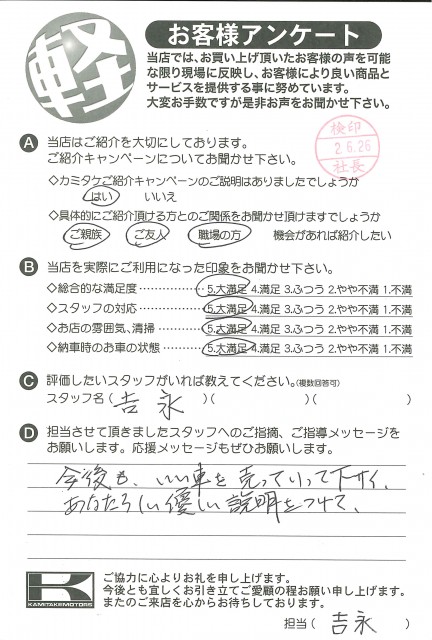 軽
お客様アンケート
当店では、お買い上げ頂いたお客様の声を可能
な限り現場に反映し、お客様により良い商品と
サービスを提供する事に努めています。
大変お手数ですが是非お声をお聞かせ下さい。
検印
2.6.26
社長
A 当店はご紹介を大切にしております。
ご紹介キャンペーンについてお聞かせ下さい。
◇カミタケご紹介キャンペーンのご説明はありましたでしょうか
はい いいえ
◇具体的にご紹介頂ける方とのご関係をお聞かせ頂けますでしょうか
ご親族 ご友人 職場の方 機会があれば紹介したい
B 当店を実際にご利用になった印象をお聞かせ下さい。
◇総合的な満足度 5.大満足 4.満足 3.ふつう 2.やや不満 1.不満
◇スタッフの対応 5.大満足 4.満足 3.ふつう 2.やや不満 1.不満
◇お店の雰囲気、清掃 5.大満足 4.満足 3.ふつう 2.やや不満 1.不満
◇納車時のお車の状態 5.大満足 4.満足 3.ふつう 2.やや不満 1.不満
C 評価したいスタッフがいれば教えてください。(複数回答可)
スタッフ名( 吉永 )( )( )
D 担当させて頂きましたスタッフへのご指摘、ご指導メッセージを
お願いします。応援メッセージもぜひお願いします。
今後も、いい車を売っていって下サイ。
あなたらしい優しい説明をつけて、
K
KAMITAKEMOTORS
ご協力に心よりお礼を申し上げます。
今後とも宜しくお引き立てご愛顧の程お願い申し上げます。
またのご来店を心からお待ちしております。
担当( 吉永 )